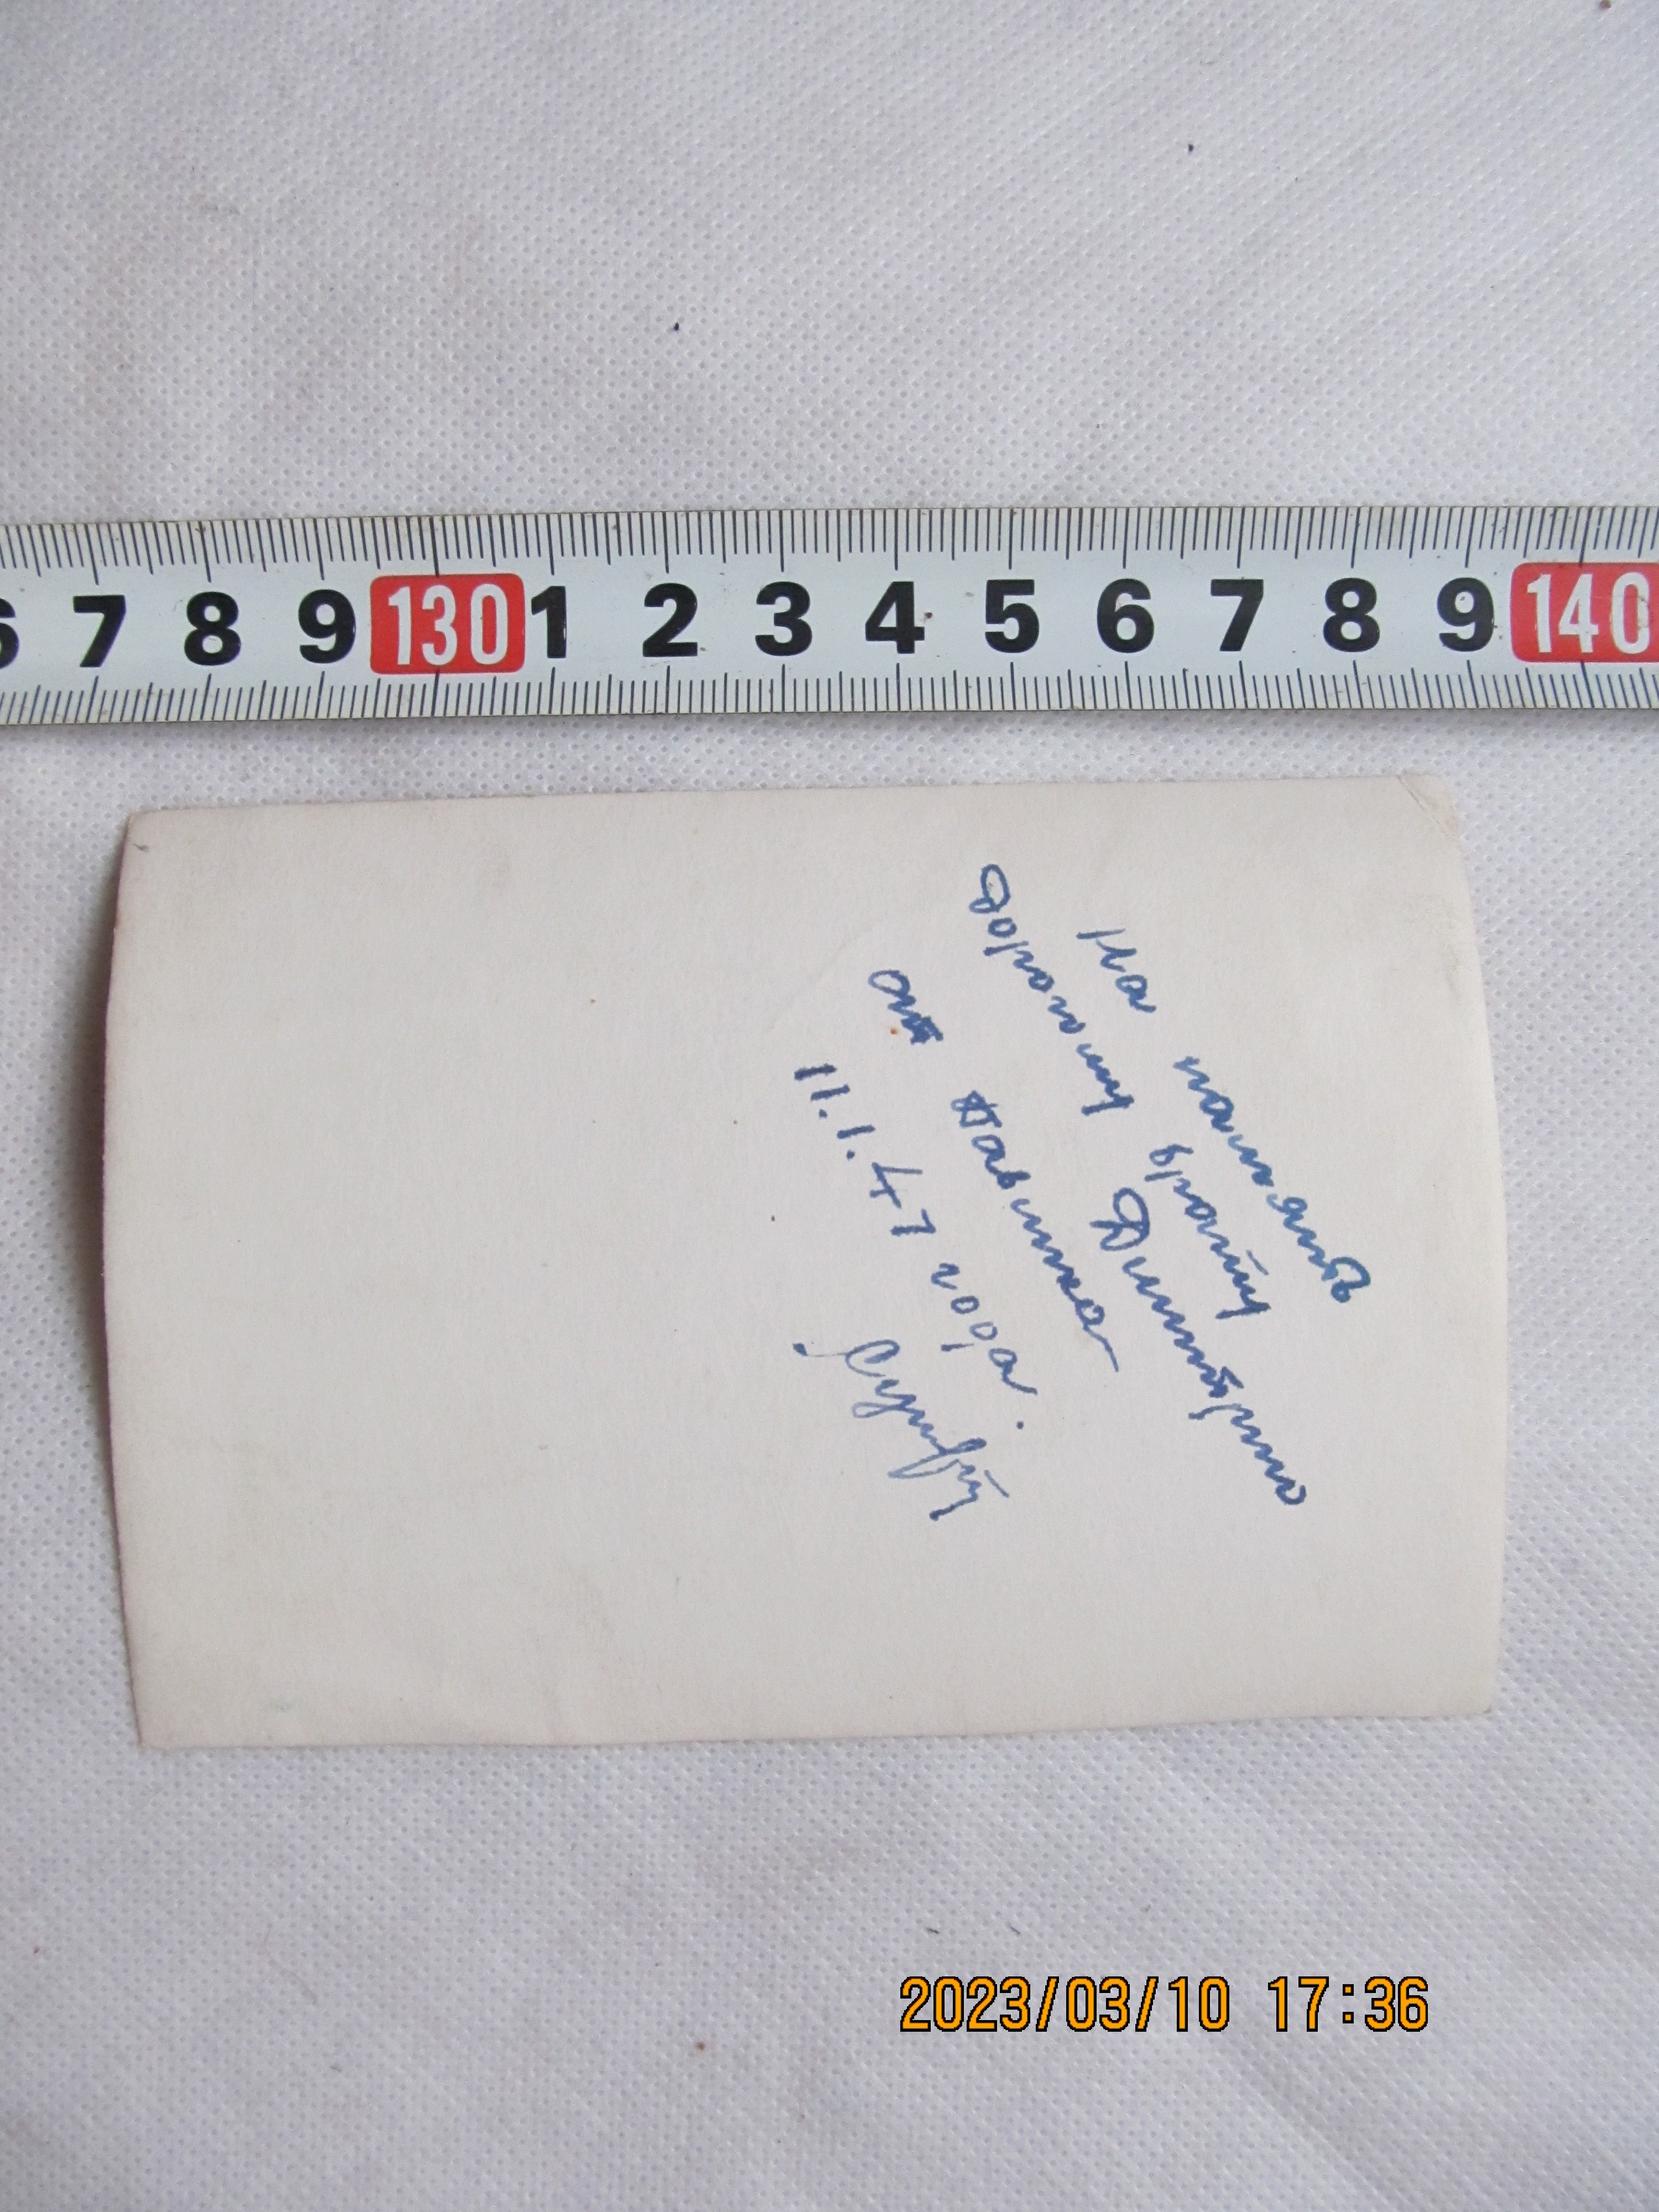 6 7 8 9 130 1 2 3 4 5 6 7 8 9 140
на память
дорогому брату
Дмитрию
от Павлика
11.1.47 года.
2023/03/10 17:36